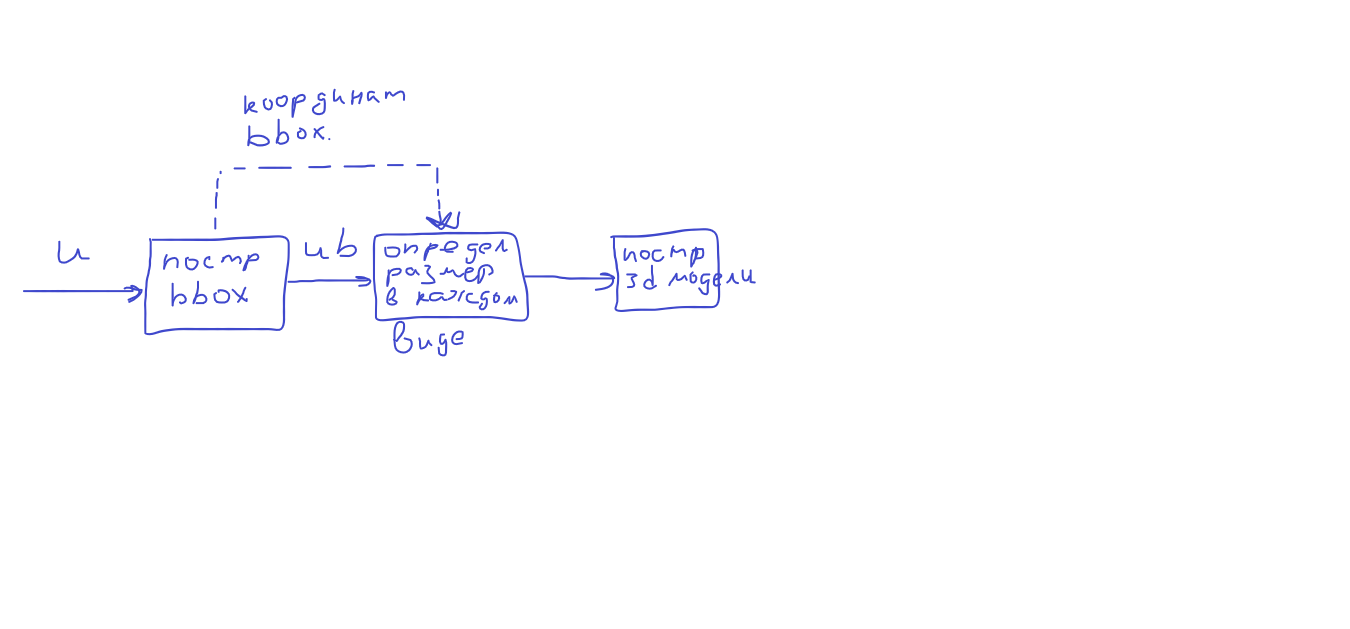 координат
bbox.
и
постр
bbox
иb
определ
размер
в каждом
виде
постр
3d модели